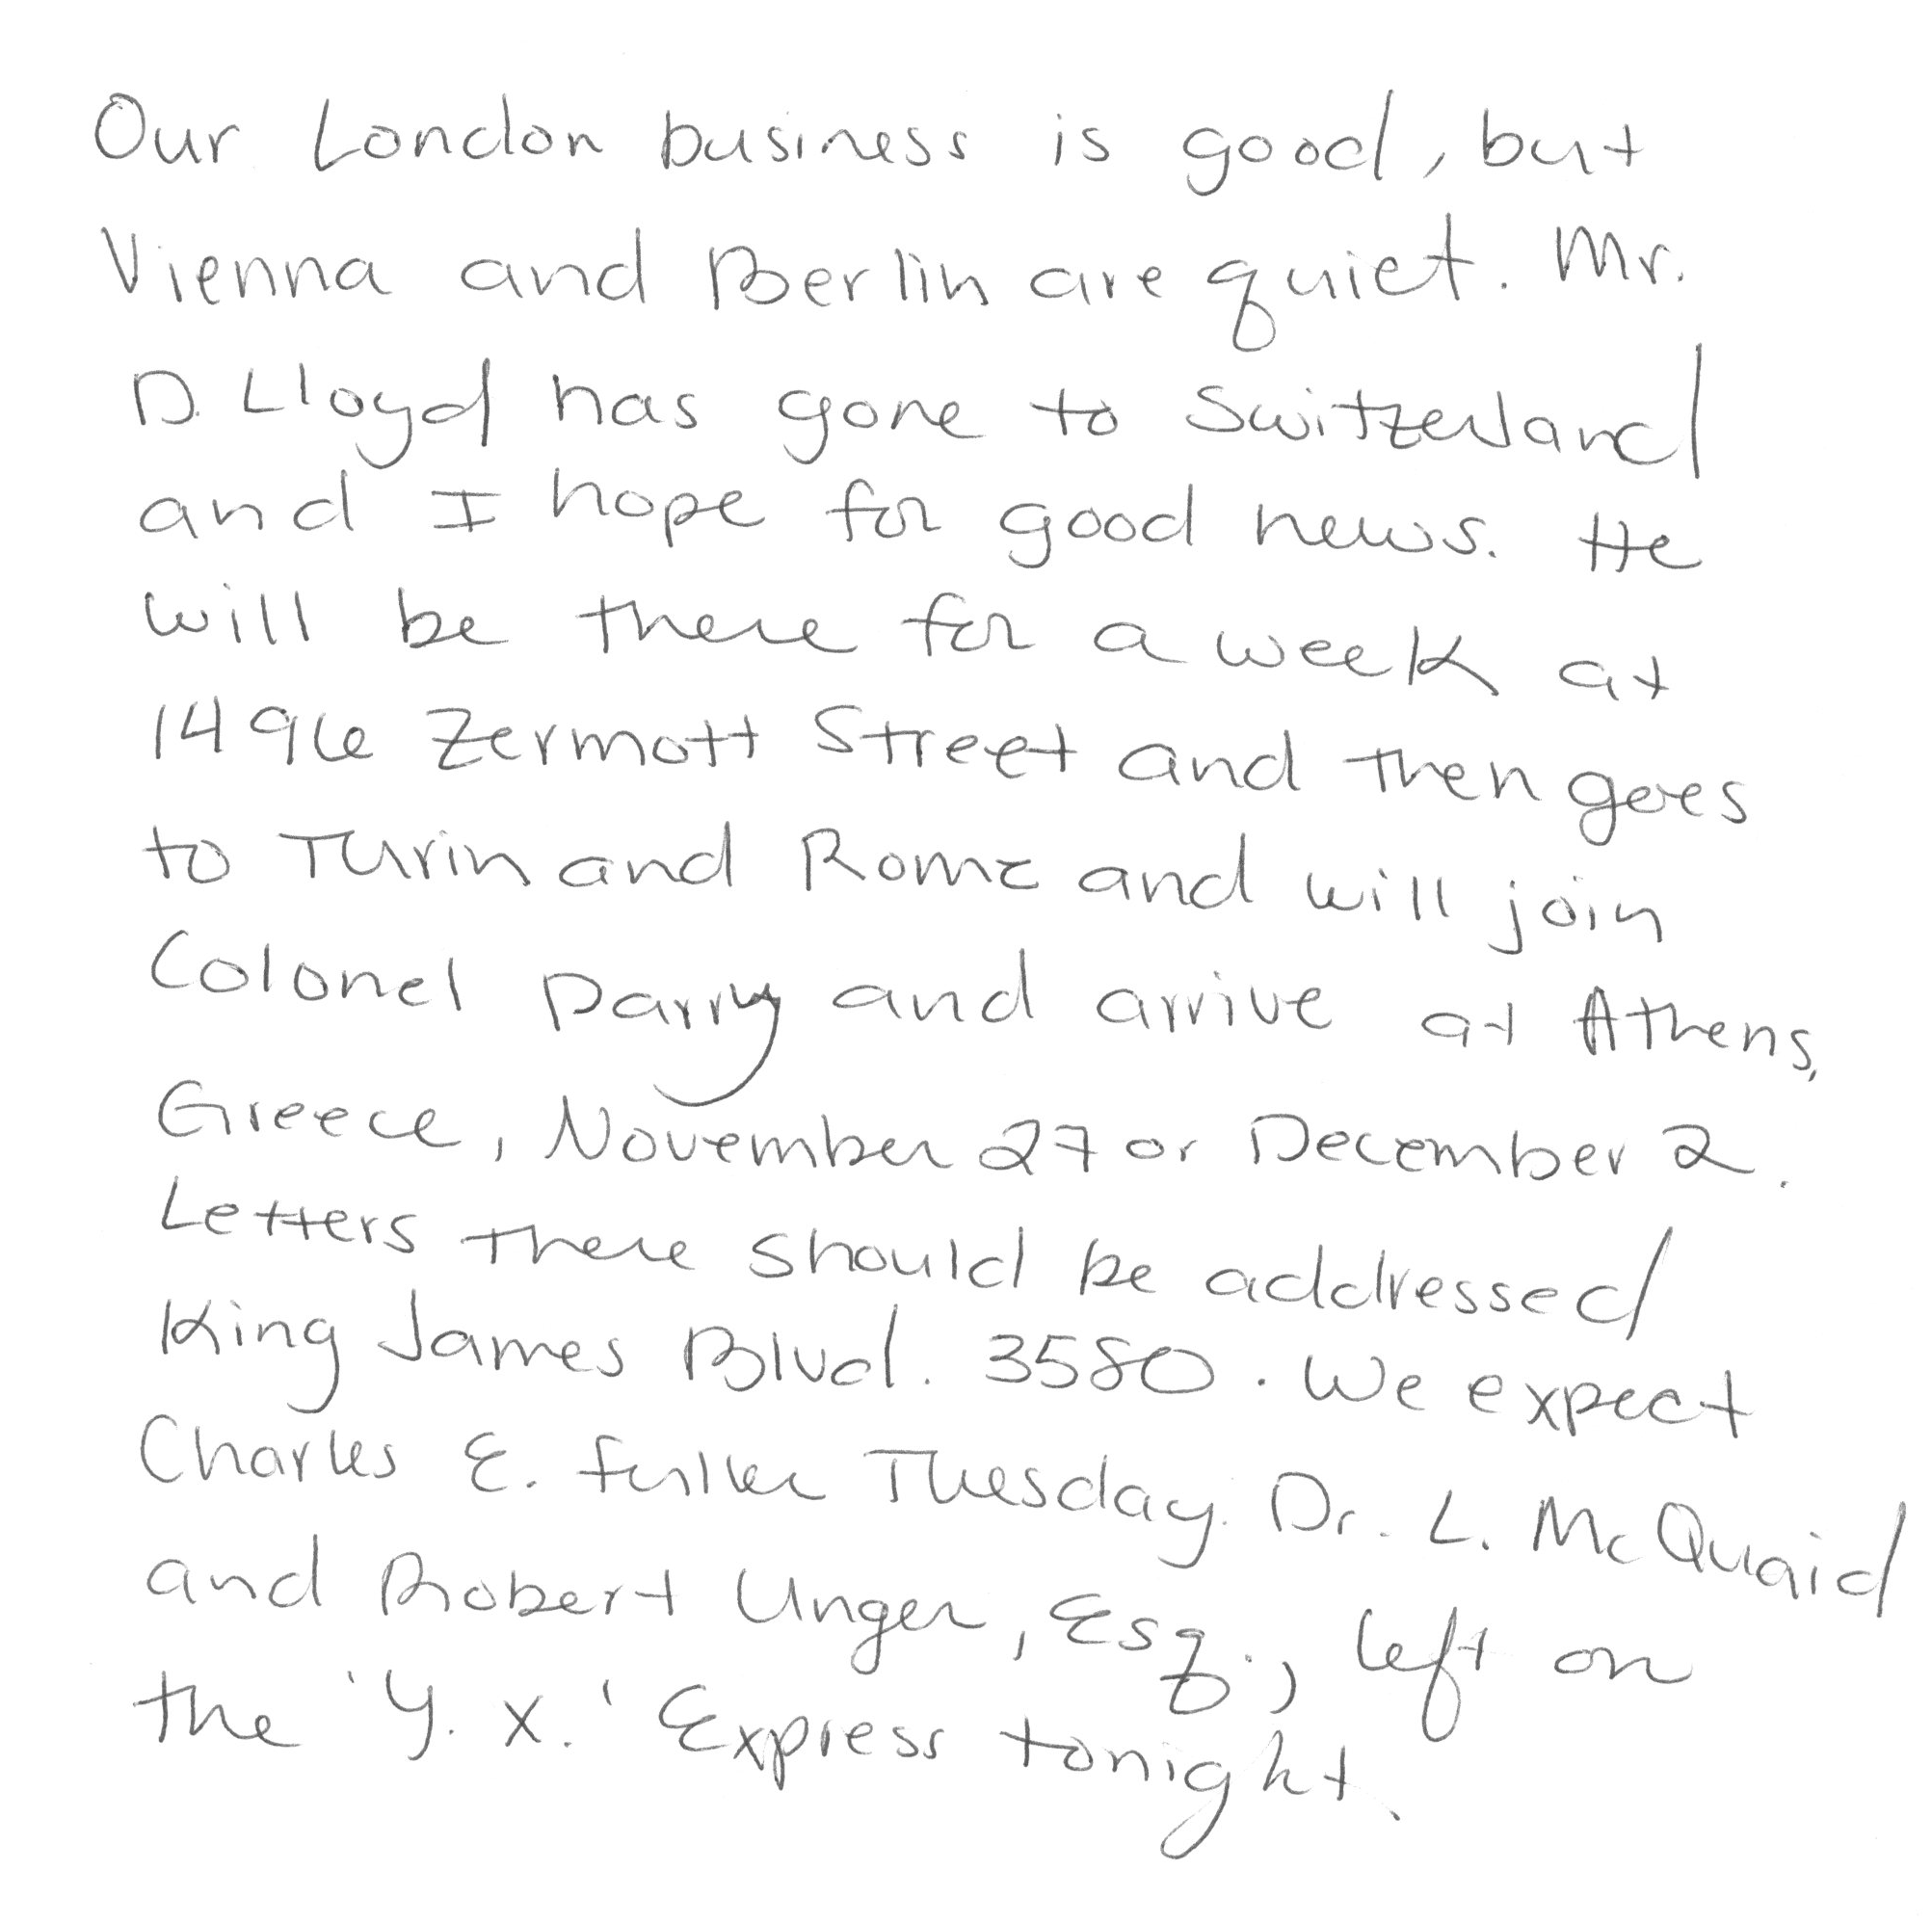 Our London business is good, but
Vienna and Berlin are quiet. Mr.
D. Lloyd has gone to Switzerland
and I hope for good news. He
will be there for a week at
1496 Zermott Street and then goes
to Turin and Rome and will join
Colonel Parry and arrive at Athens,
Greece, November 27 or December 2.
Letters there should be addressed
King James Blvd. 3580. We expect
Charles E. Fuller Tuesday. Dr. L. McQuaid
and Robert Unger, Esq., left on
the 'Y. X.' Express tonight.